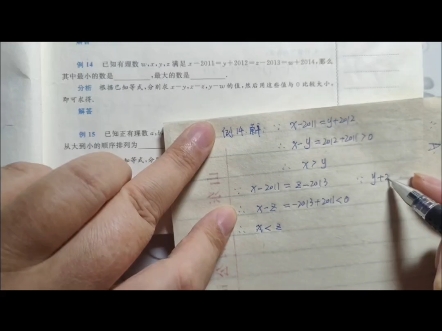 解答
例14 已知有理数w,x,y,z满足x-2011=y+2012=z-2013=w+2014,那么
其中最小的数是______,最大的数是______.
分析 根据已知等式,分别求x-y,x-z,y-w的值,然后用这些值与0比较大小,
即可求得.
解答
例15 已知正有理数a,
从大到小的顺序排列为
例14.解: ∵ x-2011=y+2012
∴ x-y=2012-2011>0
∴ x>y
∵ x-2011=z-2013
∴ x-z=-2013+2011<0
∴ x<z
∵ y+2